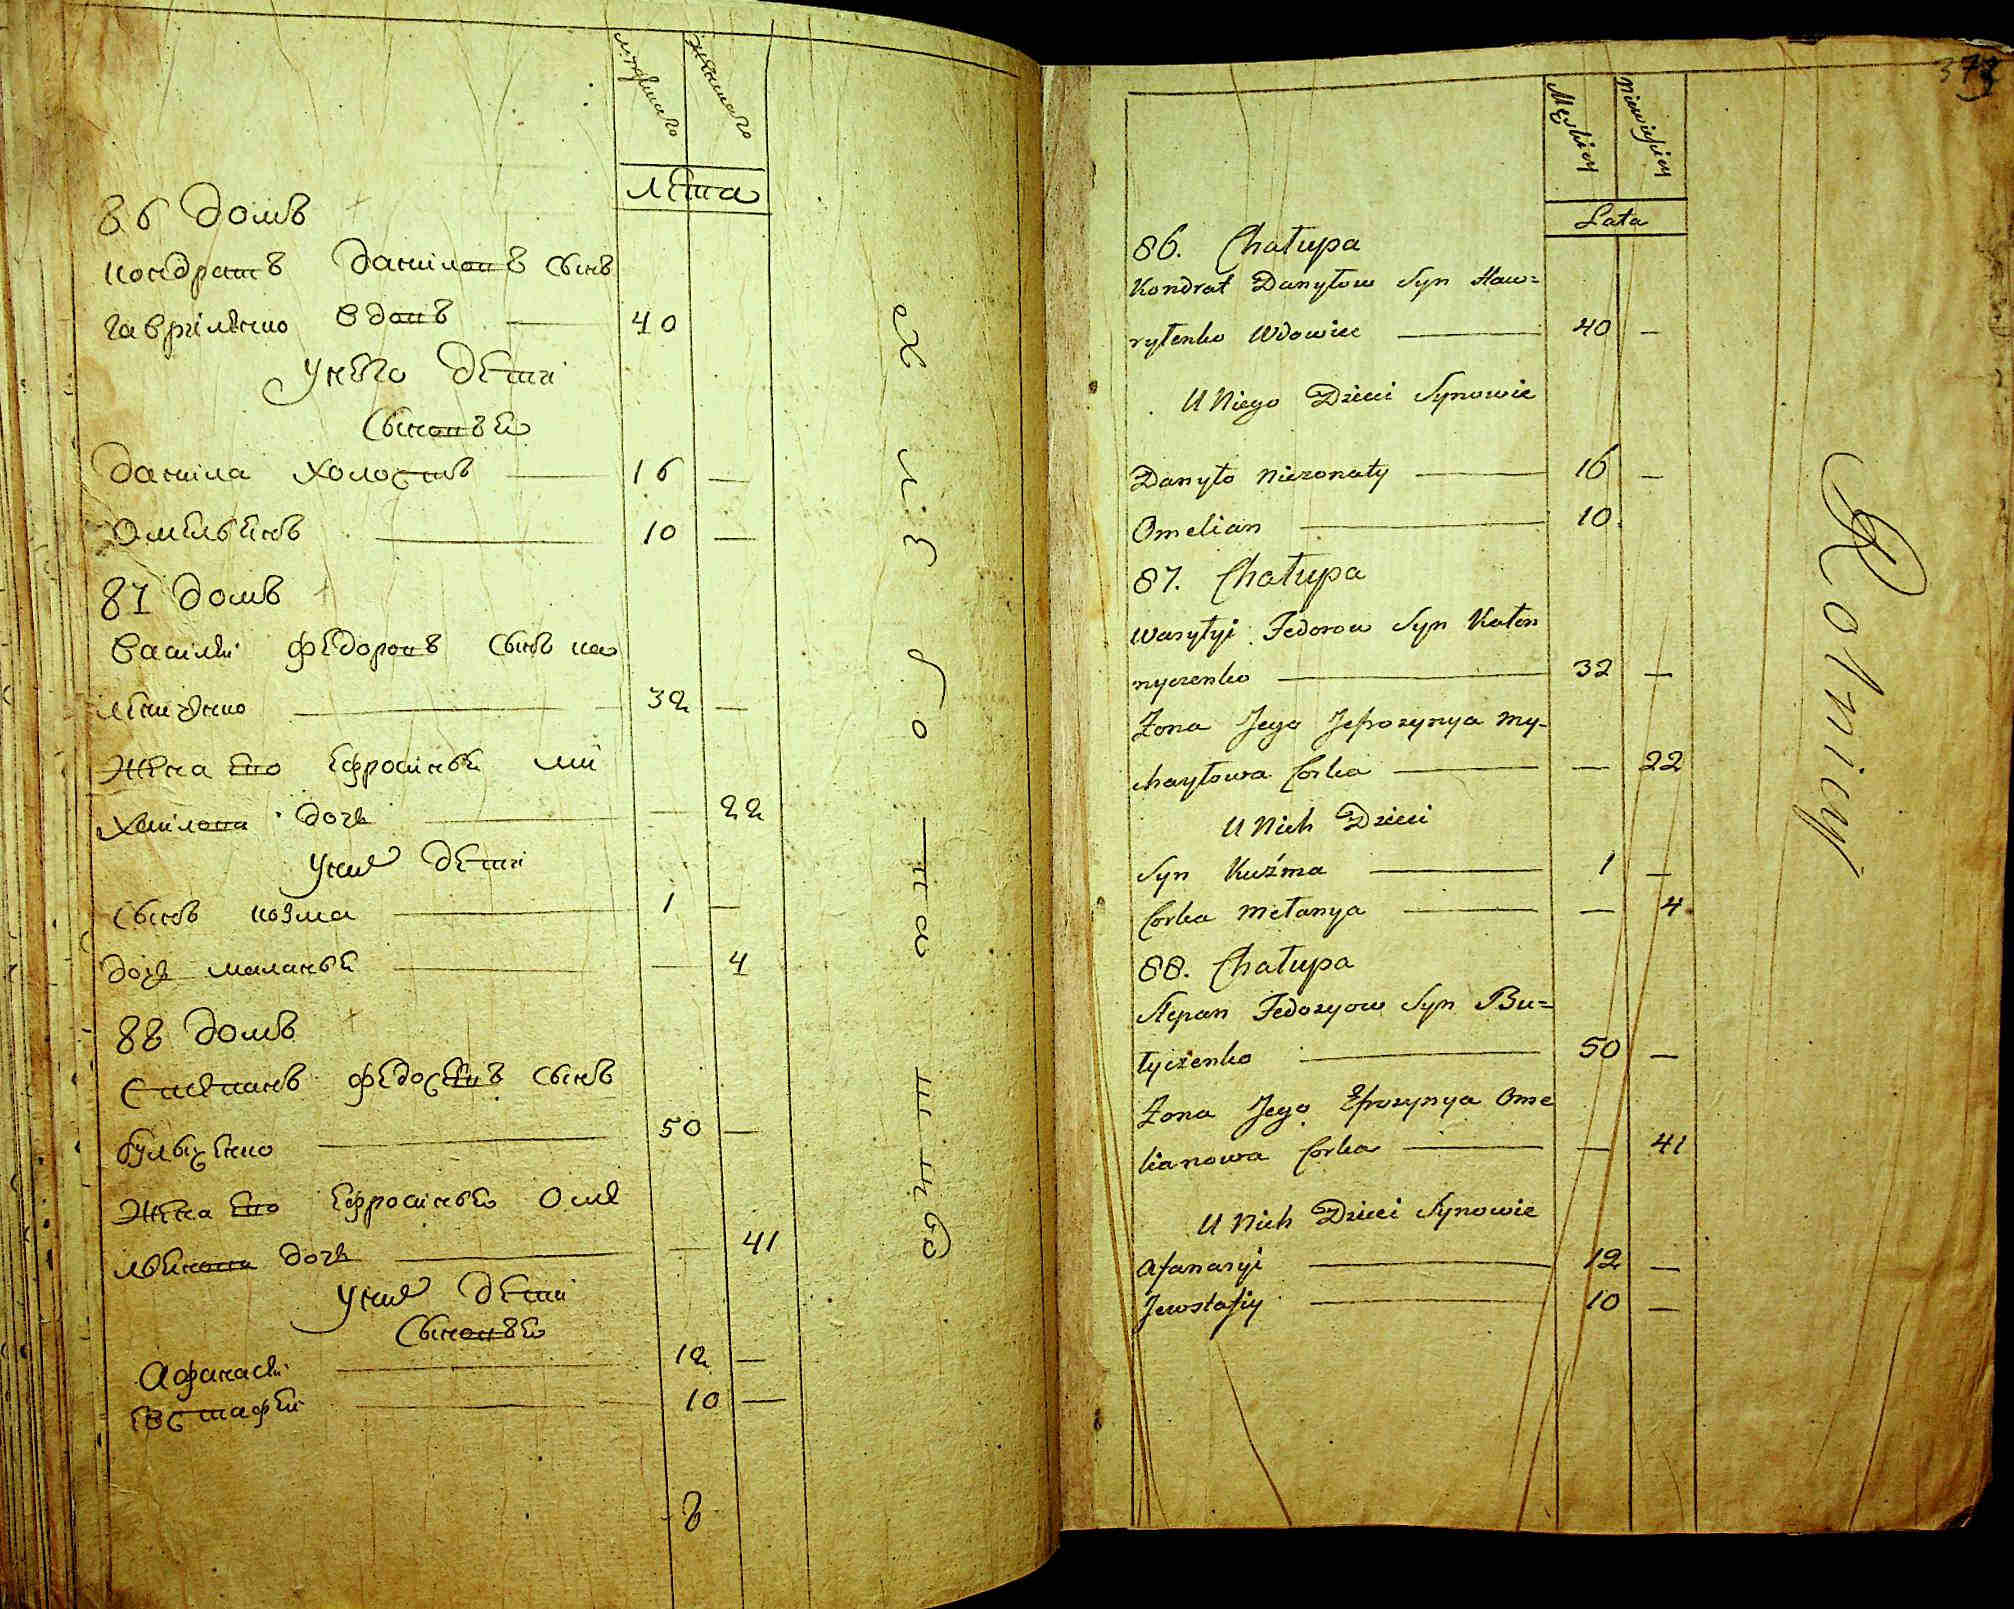 мужеска женска
лѣта
86 домъ
кондратъ даниловъ сынъ
гавриленко вдовъ 40
унего дети
сыновья
данила холостъ 16 —
Омельянъ 10 —
87 домъ
василей федоровъ сынъ ка
лениченко 32 —
жена ево ефросинья ми
хаилова дочь — 22
уних дети
сынъ козма 1 —
дочь маланья — 4
88 домъ
степанъ федосѣевъ сынъ
булыченко 50 —
жена ево ефросинья оме
льянова дочь — 41
уних дети
сыновья
Афанасей 12 —
евстафей 10 —
8
373
Męskiey Niewieskiey
Lata
86. Chałupa
Kondrat Danyłow Syn Haw=
ryłenko Wdowiec 40 —
U Niego Dzieci Synowie
Danyło Niezonaty 16 —
Omelian 10
87. Chałupa
Wasyłyi Fedorow Syn Kałen
nyczenko 32 —
Żona Jego Jefrozynya My-
chayłowa Corka — 22
U Nich Dzieci
Syn Kuźma 1 —
Corka Mełanya — 4
88. Chałupa
Stepan Fedozyow Syn Bu=
łyczenko 50 —
Żona Jego Efrozynya Ome
lianowa Corka — 41
U Nich Dzieci Synowie
Afanasyi 12 —
Jewstafiy 10 —
Rolnicy